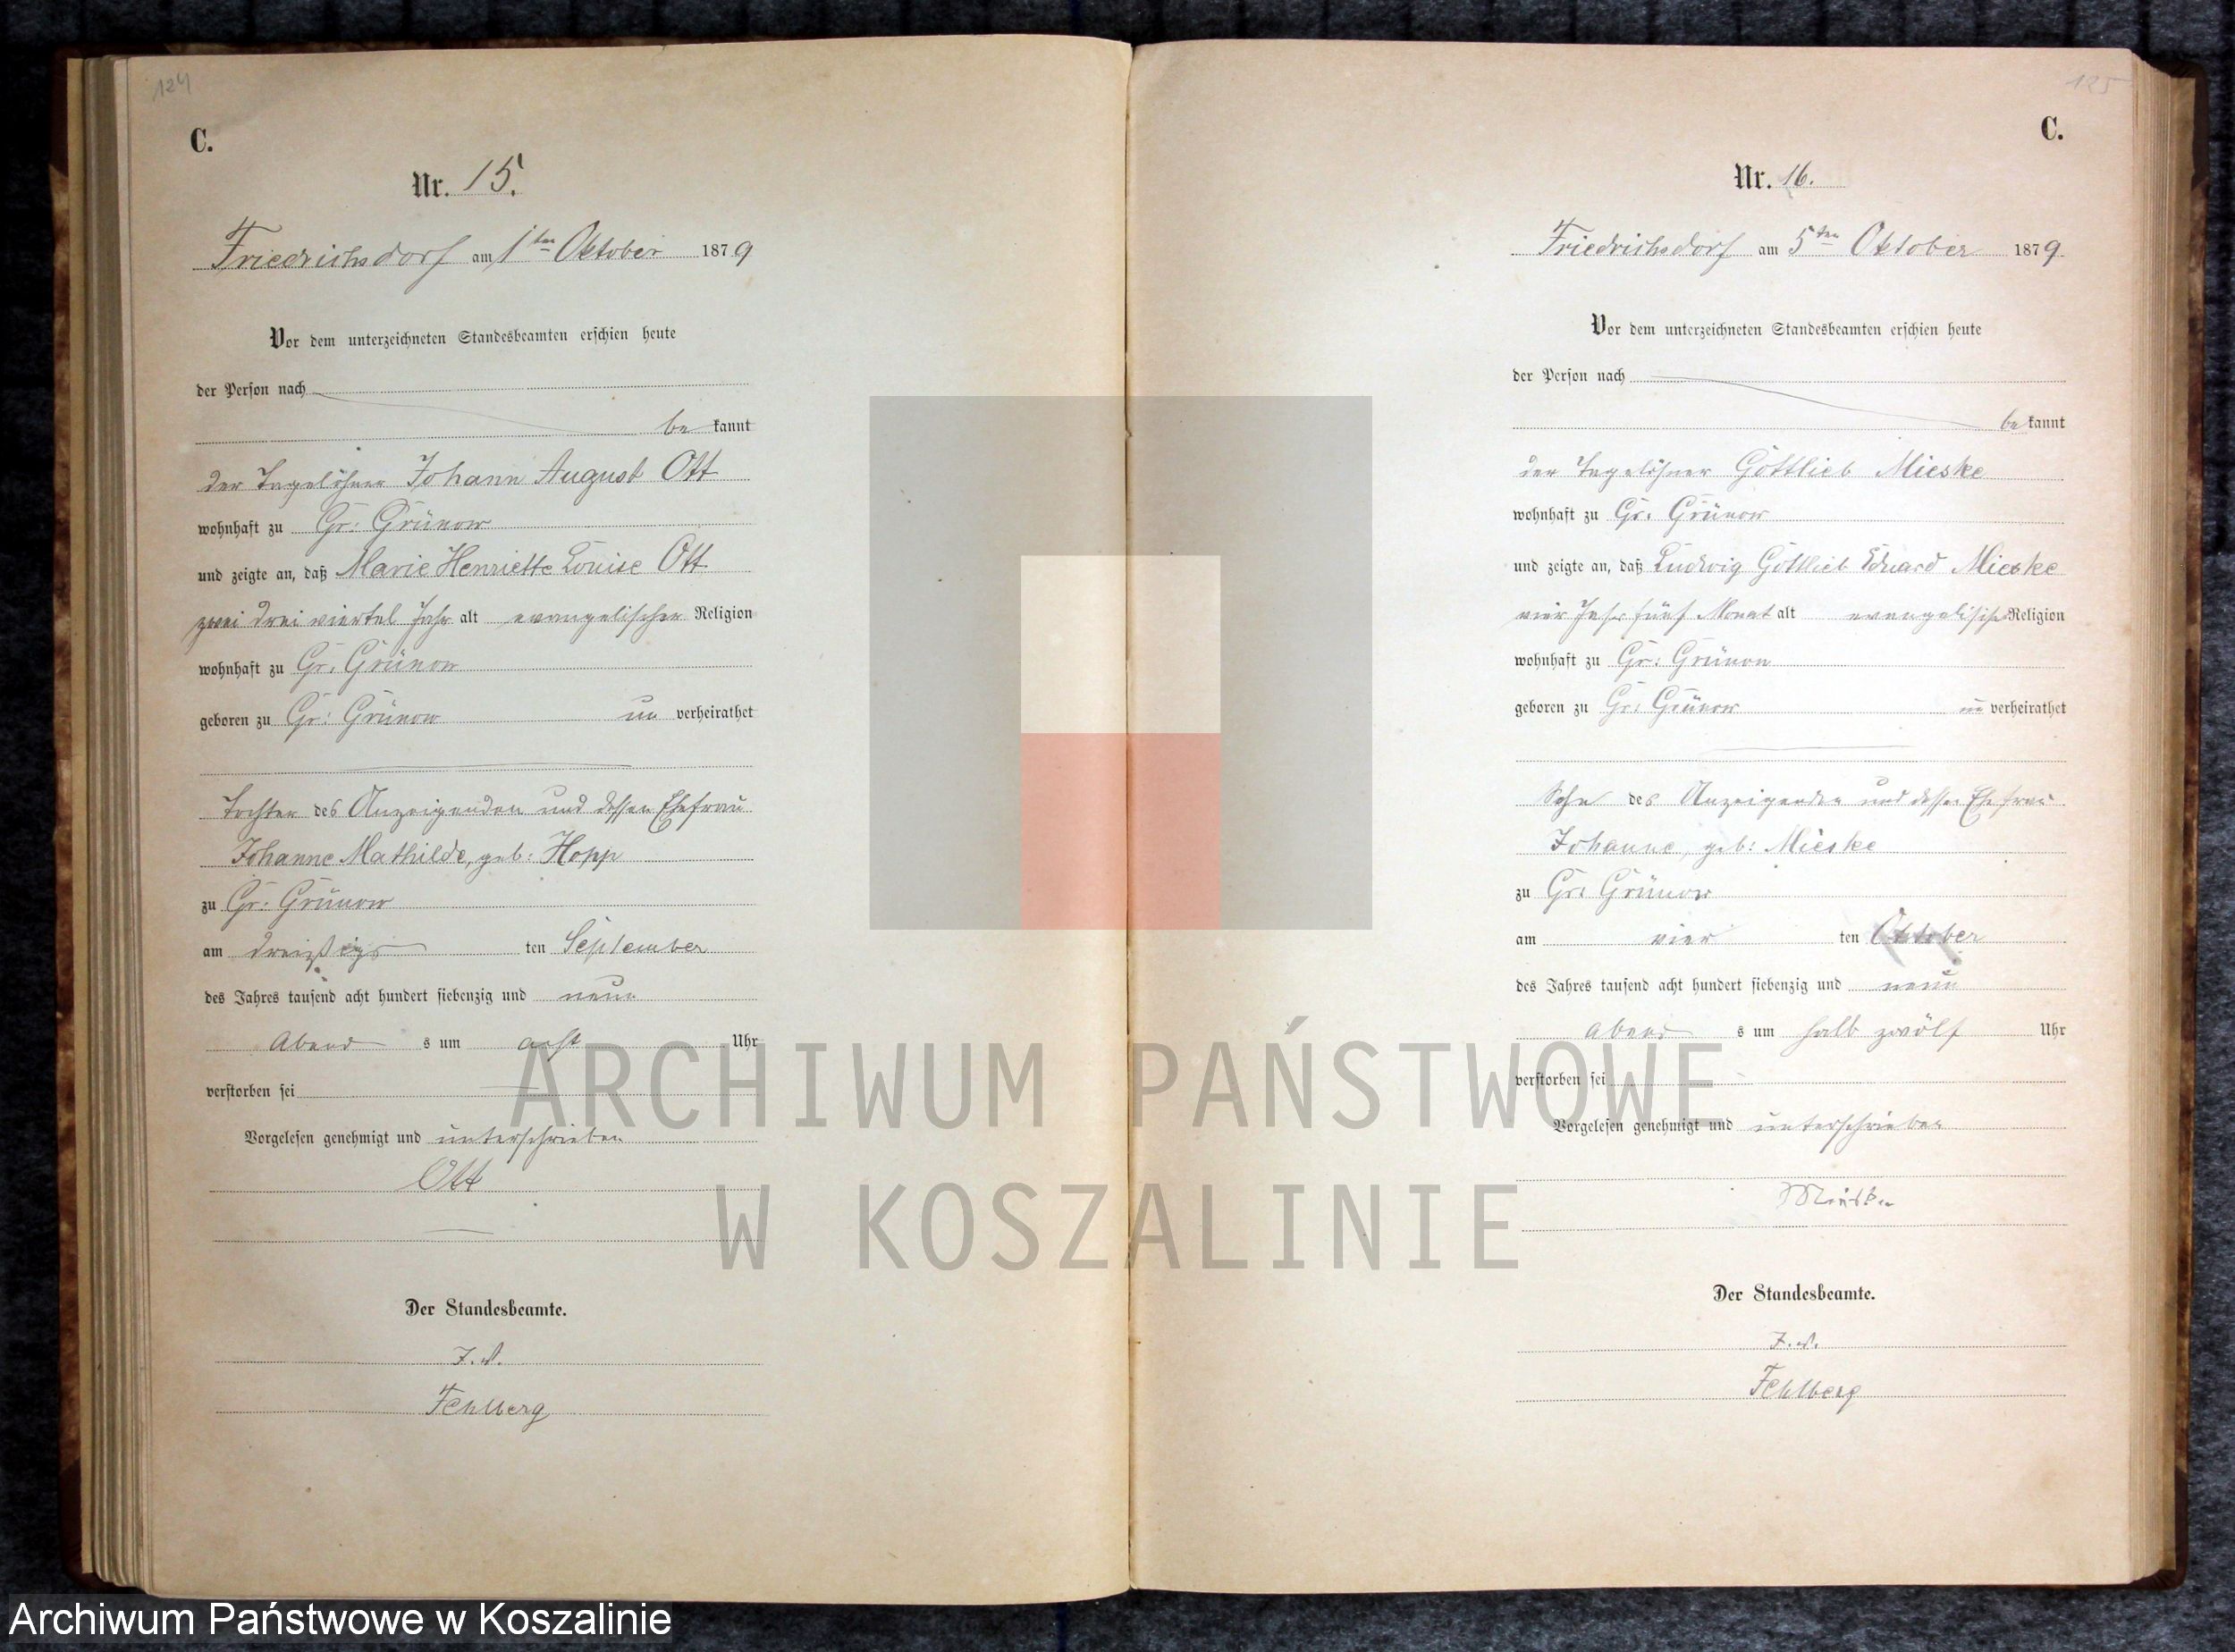 124
C.
Nr. 15.
Friedrichsdorf am 1ten Oktober 1879
Vor dem unterzeichneten Standesbeamten erschien heute
der Person nach
be kannt
der Tagelöhner Johann August Ott
wohnhaft zu Gr: Grünow
und zeigte an, daß Marie Henriette Louise Ott
zwei drei viertel Jahr alt evangelischer Religion
wohnhaft zu Gr. Grünow
geboren zu Gr: Grünow un verheirathet
Tochter des Anzeigenden und dessen Ehefrau
Johanne Mathilde, geb: Hopp
zu Gr: Grünow
am dreißigs ten September
des Jahres tausend acht hundert siebenzig und neun
Abend s um acht Uhr
verstorben sei
Vorgelesen genehmigt und unterschrieben
Ott
Der Standesbeamte.
J. V.
Fehlberg
125
C.
Nr. 16.
Friedrichsdorf am 5ten Oktober 1879
Vor dem unterzeichneten Standesbeamten erschien heute
der Person nach
be kannt
der Tagelöhner Gottlieb Mieske
wohnhaft zu Gr. Grünow
und zeigte an, daß Ludwig Gottlieb Eduard Mieske
vier Jahr fünf Monat alt evangelisch Religion
wohnhaft zu Gr: Grünow
geboren zu Gr: Grünow un verheirathet
Sohn des Anzeigenden und dessen Ehefrau
Johanne, geb: Mieske
zu Gr: Grünow
am vier ten Oktober
des Jahres tausend acht hundert siebenzig und neun
Abend s um halb zwölf Uhr
verstorben sei
Vorgelesen genehmigt und unterschrieben
Mieske
Der Standesbeamte.
J. V.
Fehlberg
ARCHIWUM PAŃSTWOWE
W KOSZALINIE
Archiwum Państwowe w Koszalinie